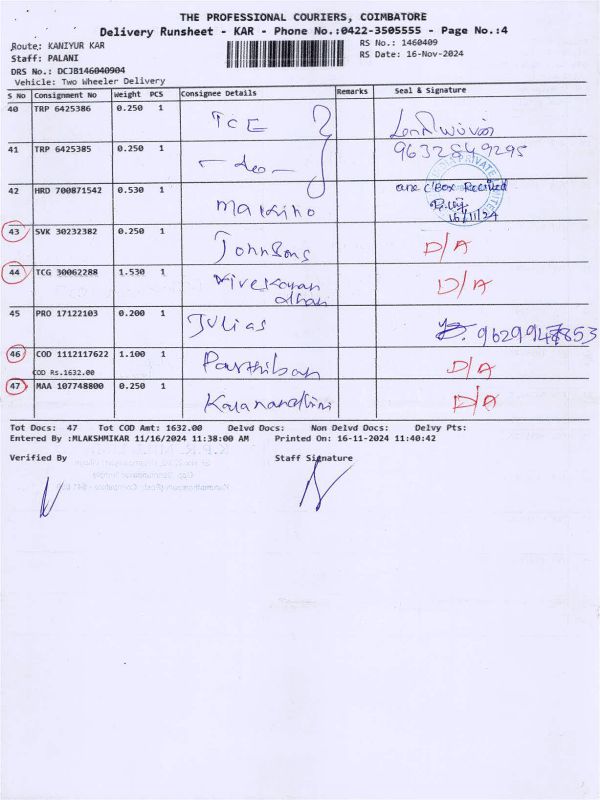 THE PROFESSIONAL COURIERS, COIMBATORE
Delivery Runsheet - KAR - Phone No.:0422-3505555 - Page No.:4
Route: KANIYUR KAR
RS No.: 1460409
Staff: PALANI
RS Date: 16-Nov-2024
DRS No.: DCJB146040904
Vehicle: Two Wheeler Delivery
S No Consignment No Weight PCS Consignee Details Remarks Seal & Signature
40 TRP 6425386 0.250 1 TCE
41 TRP 6425385 0.250 1 - do - 9632849295
42 HRD 700871542 0.530 1 Makino one C Box Received
16/11/24
43 SVK 30232382 0.250 1 Johnsons D/A
44 TCG 30062288 1.530 1 D/A
45 PRO 17122103 0.200 1 Julias
46 COD 1112117622 1.100 1 Parthiban D/A
COD Rs.1632.00
47 MAA 107748800 0.250 1 D/A
Tot Docs: 47 Tot COD Amt: 1632.00 Delvd Docs: Non Delvd Docs: Delvy Pts:
Entered By :MLAKSHMIKAR 11/16/2024 11:38:00 AM Printed On: 16-11-2024 11:40:42
Verified By Staff Signature